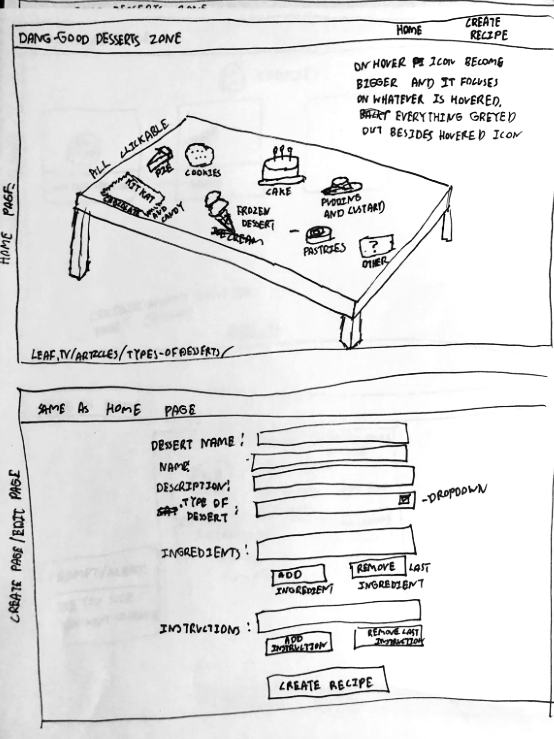 DANG-GOOD DESSERTS ZONE
HOME
CREATE
RECIPE
ON HOVER ICON BECOME
BIGGER AND IT FOCUSES
ON WHATEVER IS HOVERED.
EVERYTHING GREYED
OUT BESIDES HOVERED ICON
ALL CLICKABLE
PIE
COOKIES
CAKE
PUDDING
AND CUSTARD
KIT KAT
CHOCOLATE
AND
CANDY
FROZEN
DESSERT
ICE CREAM
PASTRIES
?
OTHER
HOME PAGE
LEAF.TV/ARTICLES/TYPES-OF-DESSERTS/
SAME AS HOME PAGE
CREATE PAGE/EDIT PAGE
DESSERT NAME:
NAME:
DESCRIPTION:
TYPE OF
DESSERT:
-DROPDOWN
INGREDIENTS:
ADD
INGREDIENT
REMOVE LAST
INGREDIENT
INSTRUCTIONS:
ADD
INSTRUCTION
REMOVE LAST
INSTRUCTION
CREATE RECIPE